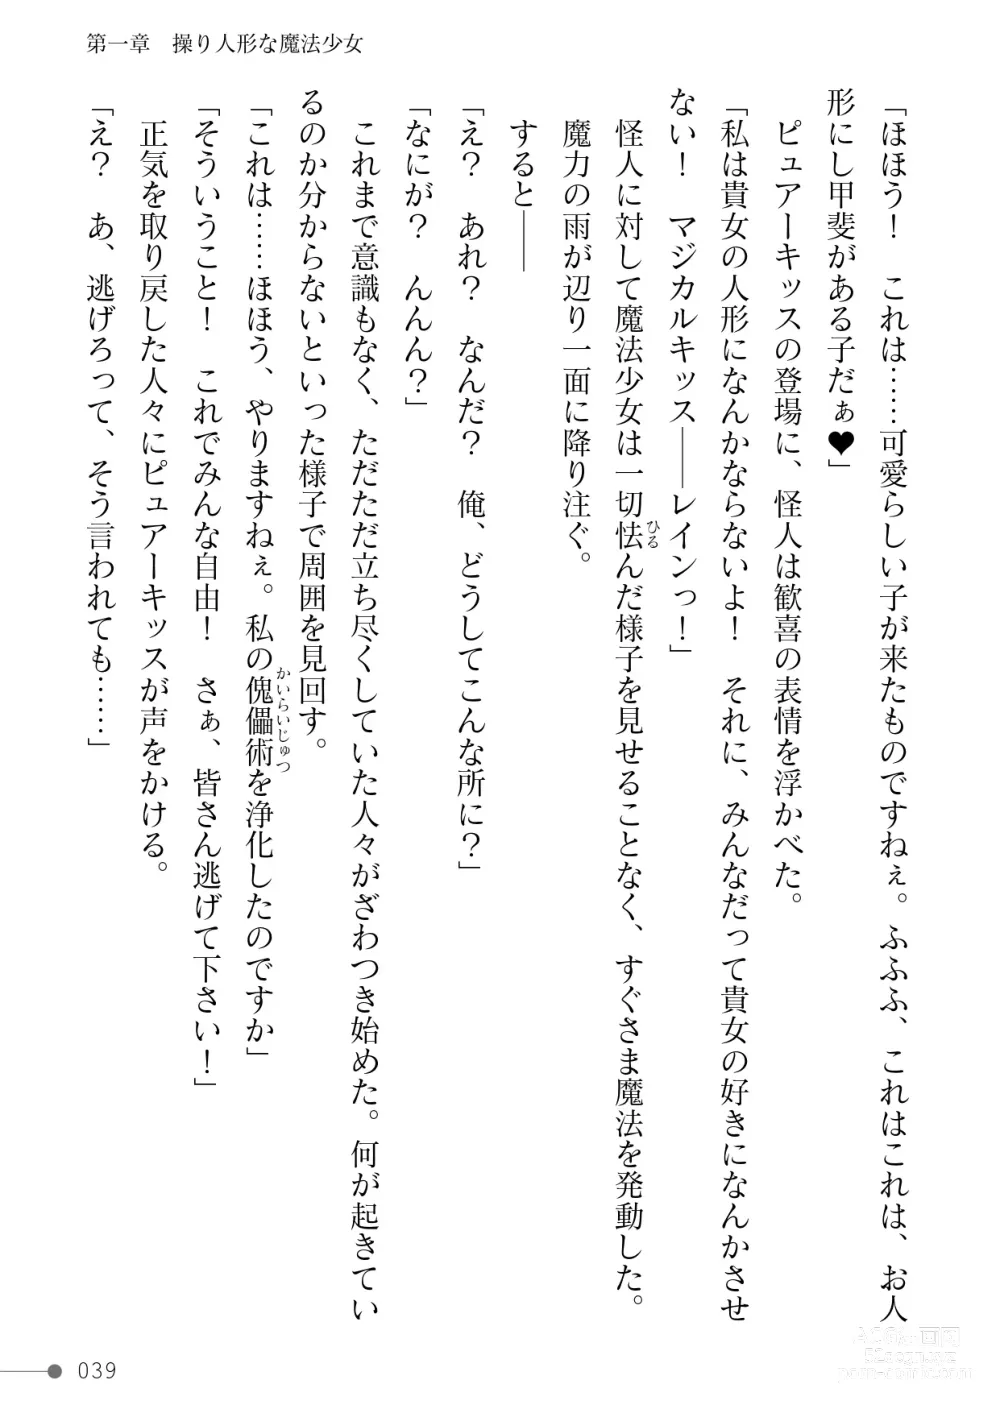 第一章　操り人形な魔法少女
「ほほう！　これは……可愛らしい子が来たものですねぇ。ふふふ、これはこれは、お人
形にし甲斐がある子だぁ♥」
　ピュアーキッスの登場に、怪人は歓喜の表情を浮かべた。
「私は貴女の人形になんかならないよ！　それに、みんなだって貴女の好きになんかさせ
ない！　マジカルキッス――レインっ！」
　怪人に対して魔法少女は一切怯んだ様子を見せることなく、すぐさま魔法を発動した。
ひる
　魔力の雨が辺り一面に降り注ぐ。
　すると――
「え？　あれ？　なんだ？　俺、どうしてこんな所に？」
「なにが？　んんん？」
　これまで意識もなく、ただただ立ち尽くしていた人々がざわつき始めた。何が起きてい
るのか分からないといった様子で周囲を見回す。
「これは……ほほう、やりますねぇ。私の傀儡術を浄化したのですか」
かいらいじゅつ
「そういうこと！　これでみんな自由！　さぁ、皆さん逃げて下さい！」
　正気を取り戻した人々にピュアーキッスが声をかける。
「え？　あ、逃げろって、そう言われても……」
039